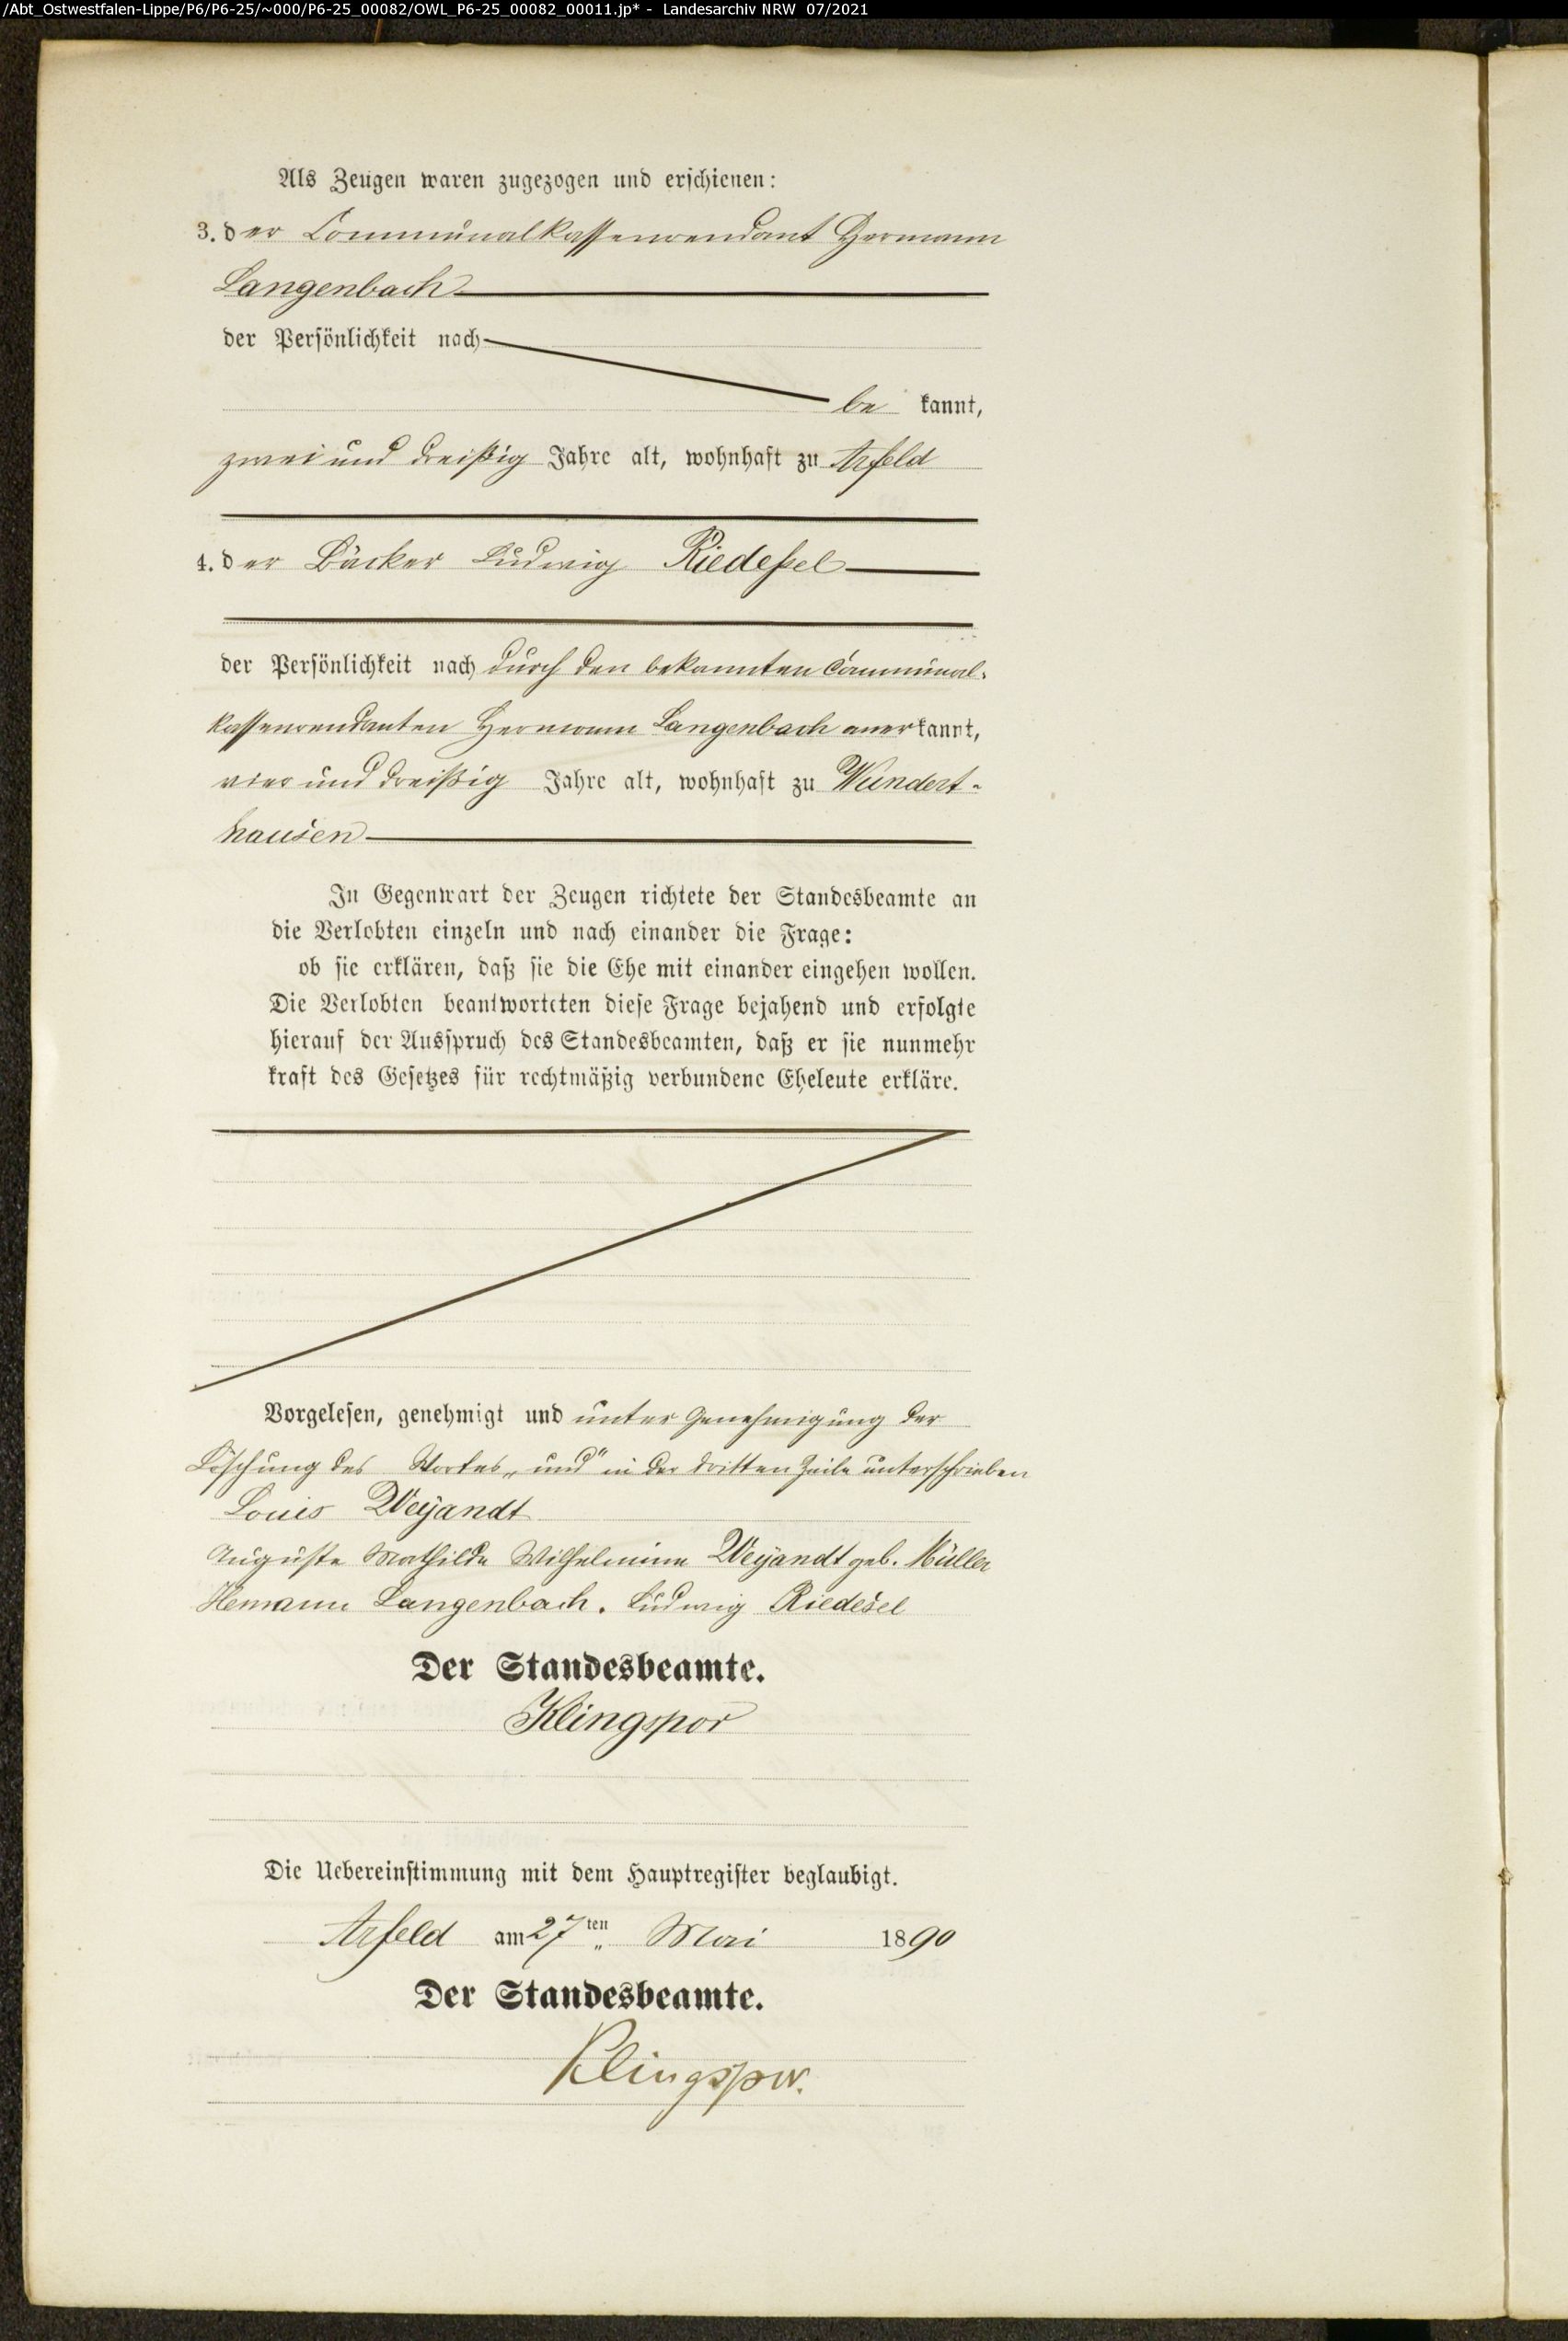 /Abt_Ostwestfalen-Lippe/P6/P6-25/~000/P6-25_00082/OWL_P6-25_00082_00011.jp* - Landesarchiv NRW 07/2021
Als Zeugen waren zugezogen und erschienen:
3. der Communalkassenrendant Hermann
Langenbach
der Persönlichkeit nach
be kannt,
zwei und dreißig Jahre alt, wohnhaft zu Arfeld
4. der Bäcker Ludwig Riedesel
der Persönlichkeit nach durch den bekannten Communal-
kassenrendanten Hermann Langenbach anerkannt,
vier und dreißig Jahre alt, wohnhaft zu Wundert-
hausen
In Gegenwart der Zeugen richtete der Standesbeamte an
die Verlobten einzeln und nach einander die Frage:
ob sie erklären, daß sie die Ehe mit einander eingehen wollen.
Die Verlobten beantworteten diese Frage bejahend und erfolgte
hierauf der Ausspruch des Standesbeamten, daß er sie nunmehr
kraft des Gesetzes für rechtmäßig verbundene Eheleute erkläre.
Vorgelesen, genehmigt und unter Genehmigung der
Löschung des Wortes „und" in der dritten Zeile unterschrieben
Louis Weÿandt
Auguste Mathilde Wilhelmine Weÿandt geb. Müller
Hemann Langenbach. Ludwig Riedesel
Der Standesbeamte.
Klingspor
Die Uebereinstimmung mit dem Hauptregister beglaubigt.
Arfeld am 27ten Mai 1890
Der Standesbeamte.
Klingspor.